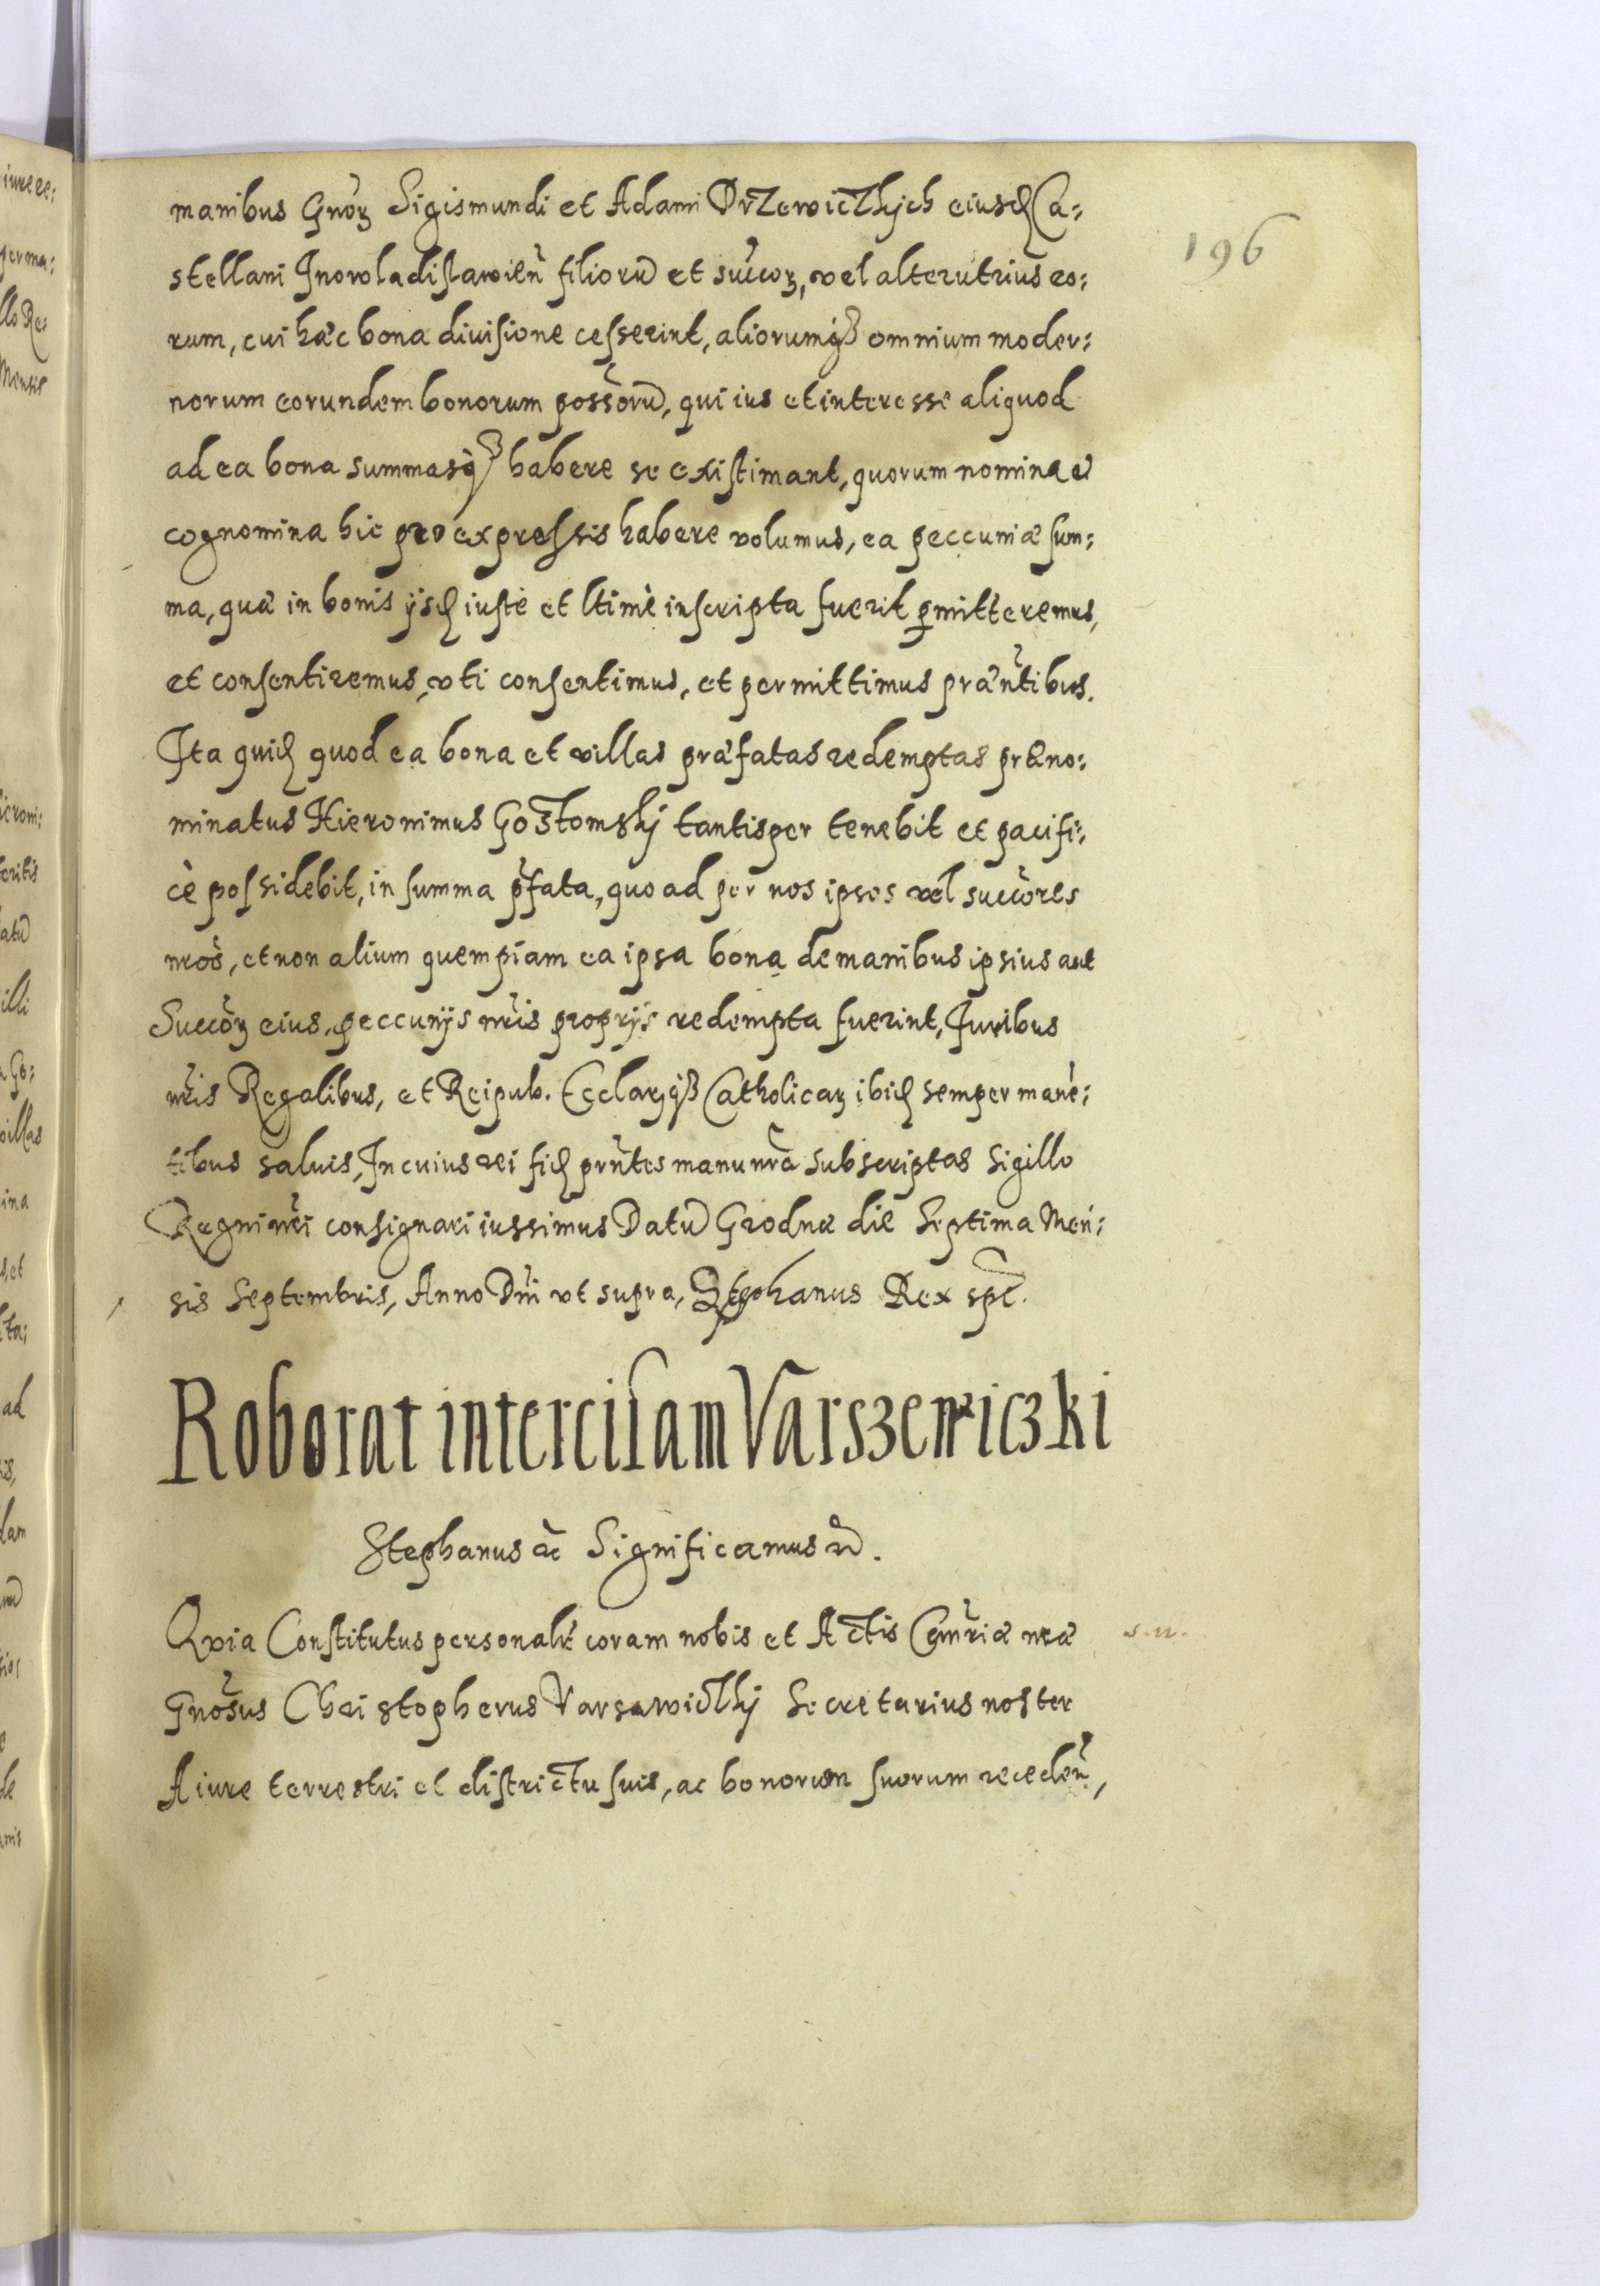 196
manibus Gnoꝝ Sigismundi et Adami Drzewiczkych eiusd Ca:
stellani Inowladislawień filiorū et succoꝝ, vel alterutrius eo:
rum, cui hæc bona diuisione cesserint, aliorumqꝫ omnium moder:
norum eorundem bonorum possorū, qui ius et interesse aliquod
ad ea bona summasqꝫ habere se existimant, quorum nomina et
cognomina hic pro expressis habere volumus, ea peccuniæ sum:
ma, quæ in bonis ijsd iuste et ltimè inscripta fuerit ꝑmitteremus,
et consentiremus, vti consentimus, et permittimus præntibus.
Ita quid quod ea bona et villas præfatas redemptas præno:
minatus Hieronimus Gostomsky tantisper tenebit et pacifi:
cè possidebit, in summa pfata, quoad per nos ipsos vel succores
nros, et non alium quempiam ea ipsa bona de manibus ipsius aut
Succoꝝ eius, peccunijs nris proprijs redempta fuerint, Iuribus
nris Regalibus, et Reipub. Ecclarqꝫ Catholicaꝝ ibid semper manē:
tibus saluis, In cuius rei fid prntes manu nra subscriptas Sigillo
Regni nri consignari iussimus Datū Grodnæ die Septima Men:
sis Septembris, Anno Dni vt supra, Stephanus Rex spt.
Roborat intercisam Varszewiczki
Stephanus etc Significamus etc.
Quia Constitutus personalr coram nobis et Actis Cancriæ nræ
s. n.
Gnosus Christopherus Varsawiczky Secretarius noster
A iure terrestri et districtu suis, ac bonorum suorum receden,